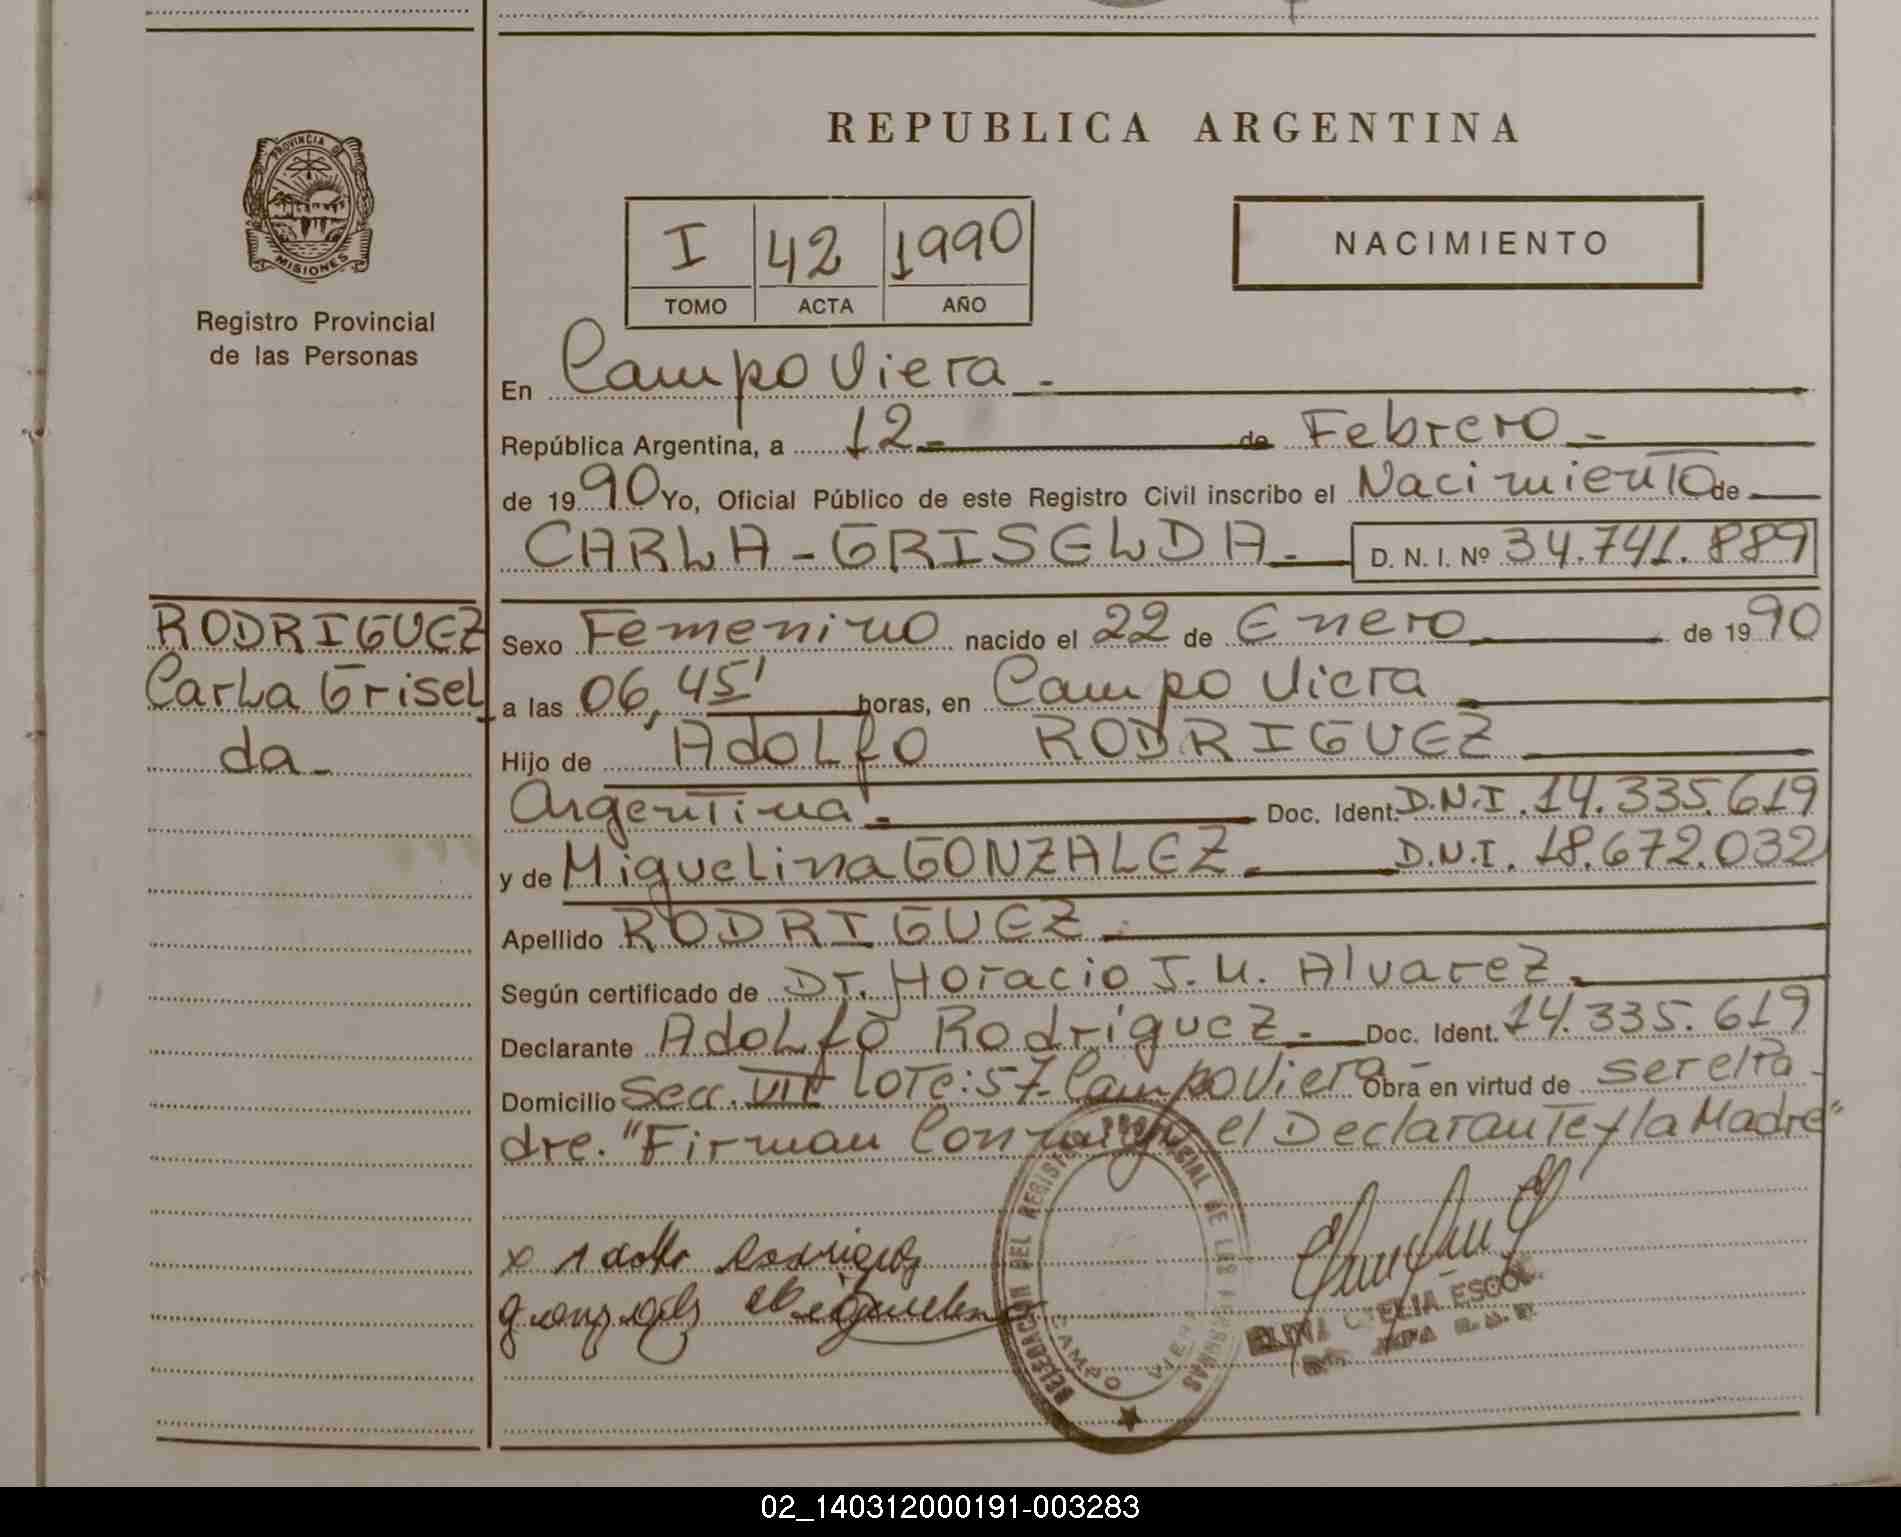 PROVINCIA DE
MISIONES
Registro Provincial
de las Personas
RODRIGUEZ
Carla Grisel
da.
REPUBLICA ARGENTINA
I 42 1990
TOMO ACTA AÑO
NACIMIENTO
En Campo Viera.
República Argentina, a 12. de Febrero.
de 1990 Yo, Oficial Público de este Registro Civil inscribo el Nacimiento de
CARLA-GRISELDA. D. N. I. Nº 34.741.889
Sexo Femenino nacido el 22 de Enero de 1990
a las 06,45' horas, en Campo Viera
Hijo de Adolfo RODRIGUEZ
Argentina. Doc. Ident. D.N.I. 14.335.619
y de Miguelina GONZALEZ. D.N.I. 18.672.032
Apellido RODRIGUEZ.
Según certificado de Dr. Horacio J. M. Alvarez.
Declarante Adolfo Rodriguez. Doc. Ident. 14.335.619
Domicilio Secc. VII Lote: 57-Campo Viera Obra en virtud de ser el Pa-
dre. "Firman Conmigo el Declarante y la Madre"
x Adolfo Rodriguez
gonzalez Miguelina
DELEGACION DEL REGISTRO PROVINCIAL DE LAS PERSONAS
CAMPO VIERA
02_140312000191-003283